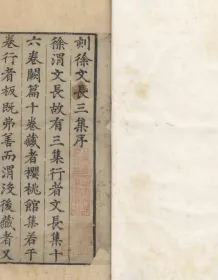 刻徐文長三集序
徐渭文長故有三集行者文長集十
六卷闕篇十卷藏者櫻桃館集若干
卷行者板既弗善而渭沒後藏者又